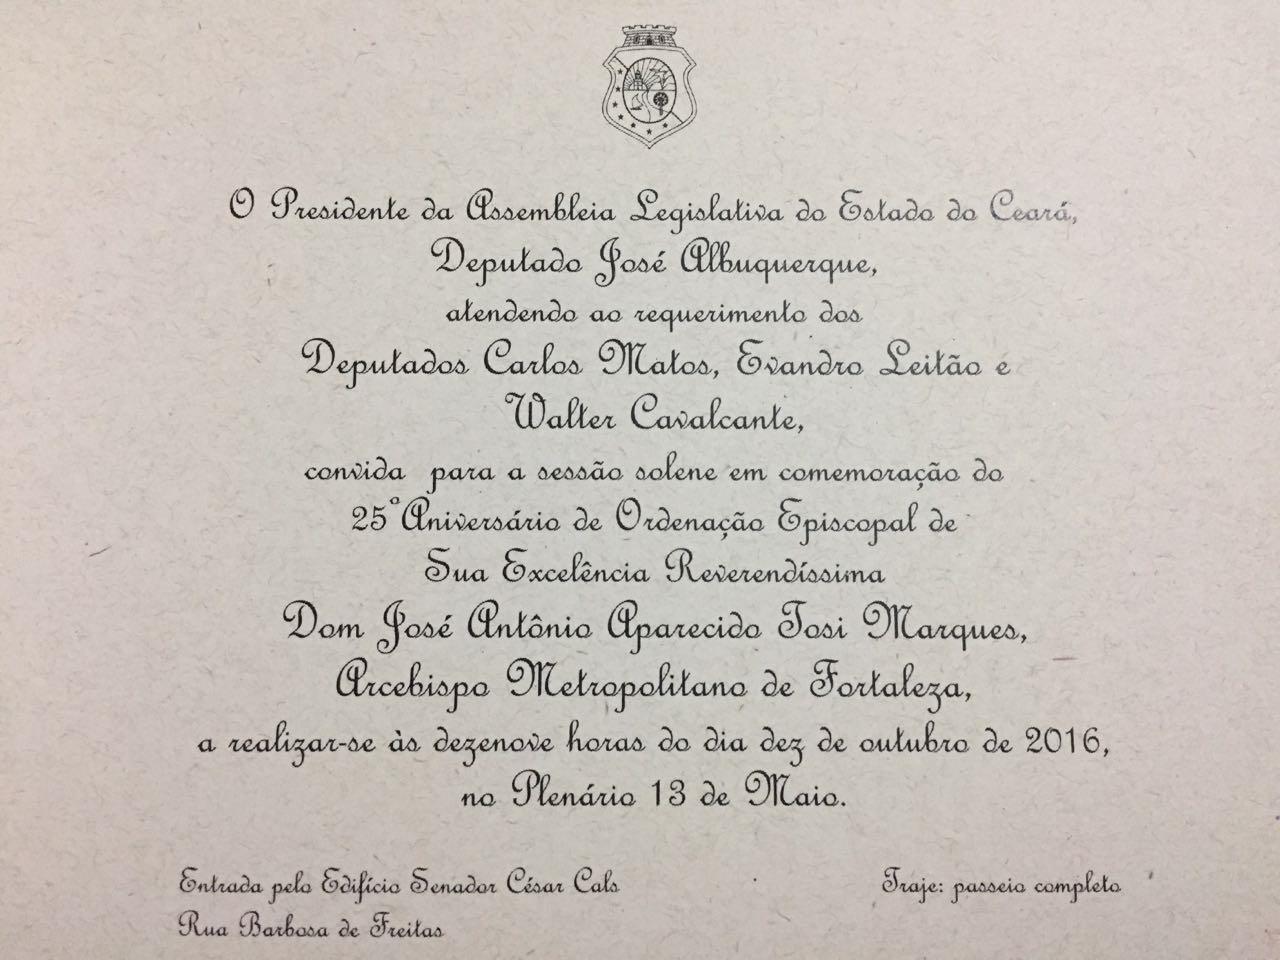 O Presidente da Assembleia Legislativa do Estado do Ceará,
Deputado José Albuquerque,
atendendo ao requerimento dos
Deputados Carlos Matos, Evandro Leitão e
Walter Cavalcante,
convida para a sessão solene em comemoração do
25º Aniversário de Ordenação Episcopal de
Sua Excelência Reverendíssima
Dom José Antônio Aparecido Tosi Marques,
Arcebispo Metropolitano de Fortaleza,
a realizar-se às dezenove horas do dia dez de outubro de 2016,
no Plenário 13 de Maio.
Entrada pelo Edifício Senador César Cals
Rua Barbosa de Freitas
Traje: passeio completo